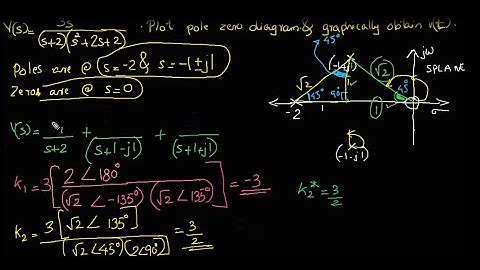 V(s)= 3s/((s+2)(s²+2s+2) . Plot pole zero diagram & graphically obtain v(t).
Poles are @ s=-2 & s=-1±j1
Zeros are @ s=0
V(s)= /(s+2) + /(s+1-j1) + /(s+1+j1)
K₁ = 3[2∠180°/((√2∠-135°)(√2∠135°))] = -3
K₂ = 3[√2∠135°]/[(√2∠45°)(2∠90°)] = 3/2
K₂* = 3/2
45°
(-1+j1)
jω
S PLANE
√2
√2
45°
90°
1
45°
-2
1
1
σ
(-1-j1)